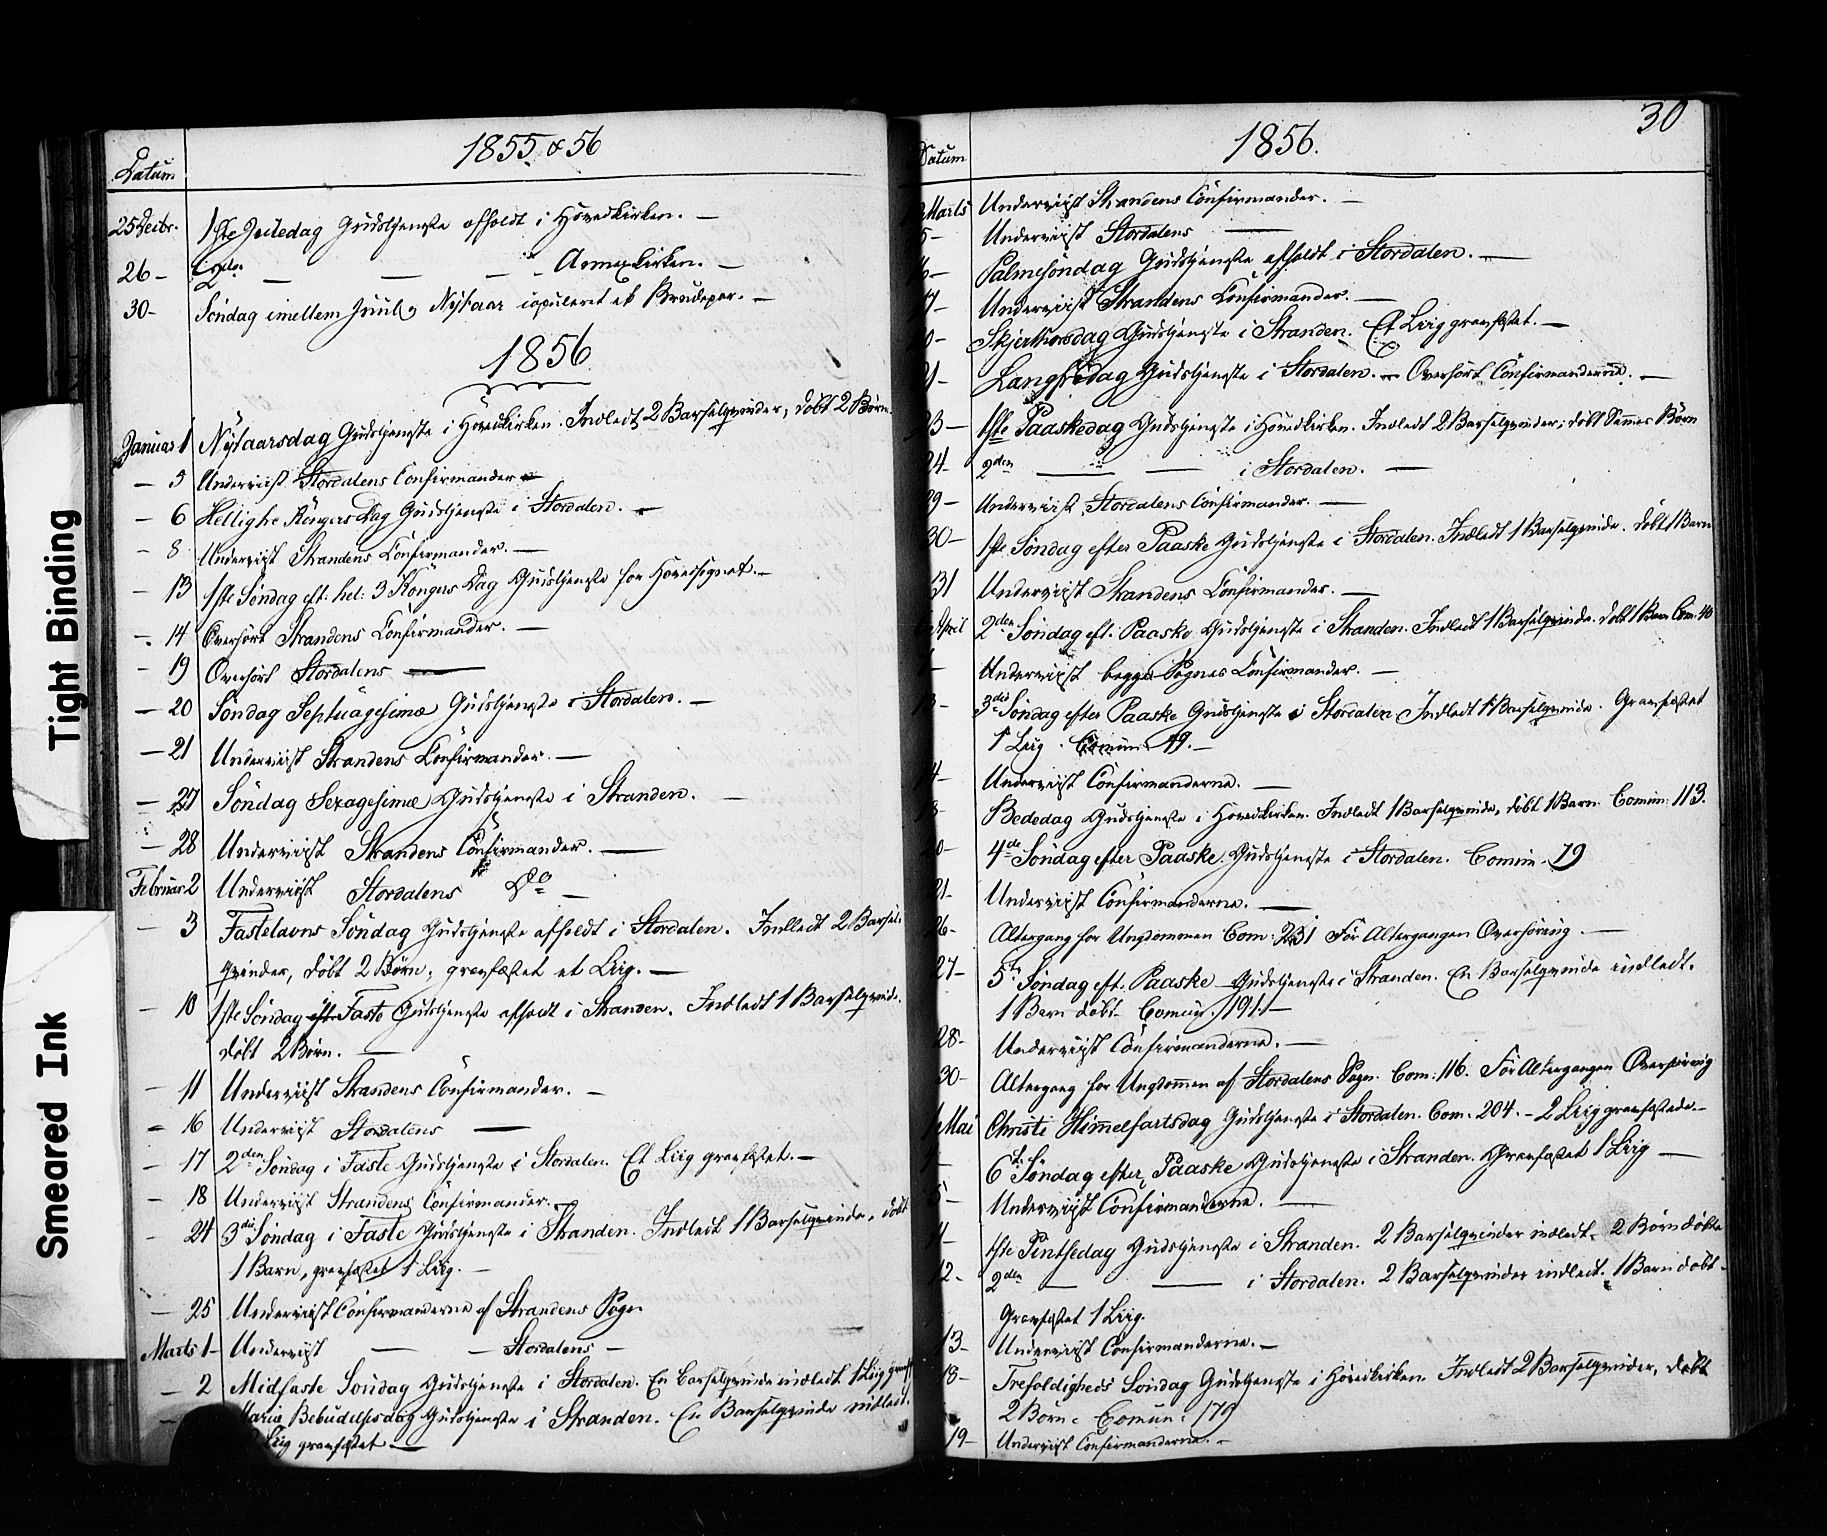 1855 & 56
Datum
25 Decbr. 1ste Juledag Gudstjeneste afholdt i Hovedkirken. —
26 - 2den — — — Annexkirken. —
30 - Søndag imellem Juul og Nytaar copuleret et Brudepar. —
1856
Januar 1 Nytaarsdag Gudstjeneste i Hovedkirken. Indledt 2 Barselqvinder, døbt 2 Børn.
— 5 Underviist Stordalens Confirmander
— 6 Hellighe Kongers Dag Gudstjeneste i Stordalen. —
— 8 Underviist Strandens Confirmander. —
— 13 1ste Søndag eft. hel: 3 Kongers Dag Gudstjeneste for Hovedsognet. —
— 14 Overhørt Strandens Confirmander. —
— 19 Overhørt Stordalens —
— 20 Søndag Septuagesimæ Gudstjeneste i Stordalen. —
— 21 Underviist Strandens Confirmander. —
— 27 Søndag Sexagesimæ Gudstjeneste i Stranden. —
— 28 Underviist Strandens Confirmander. —
Februar 2 Underviist Stordalens Do —
— 3 Fastelavns Søndag Gudstjeneste afholdt i Stordalen. Indledt 2 Barsel-
qvinder, døbt 2 Børn, gravfæstet et Liig. —
— 10 1ste Søndag eft. Faste Gudstjeneste afholdt i Stranden. Indledt 1 Barselqvinde.
døbt 2 Børn. —
— 11 Underviist Strandens Confirmander. —
— 16 Underviist Stordalens —
— 17 2den Søndag i Faste Gudstjeneste i Stordalen. Et Liig gravfæstet. —
— 18 Underviist Strandens Confirmander. —
— 24 3die Søndag i Faste Gudstjeneste i Stranden. Indledt 1 Barselqvinde, døbt
1 Barn, gravfæstet 1 Liig. —
— 25 Underviist Confirmanderne af Strandens Sogn
Marts 1 - Underviist — — Stordalens —
— 2 Midfaste Søndag Gudstjeneste i Stordalen. En Barselqvinde indledt 1 Liig gravf
Mariæ Bebudelsesdag Gudstjeneste i Stranden. En Barselqvinde indledt.
Liig gravfæstet —
30
1856.
Datum
Marts Underviist Strandens Confirmander. —
5 - Underviist Stordalens —
Palmesøndag Gudstjeneste afholdt i Stordalen. —
Underviist Strandens Confirmander. —
Skjerthorsdag Gudstjeneste i Stranden. Et Liig gravfæstet. —
Langfredag Gudstjeneste i Stordalen. — Overhørt Confirmanderne. —
23 — 1ste Paaskedag Gudstjeneste i Hovedkirken. Indledt 2 Barselqvinder; døbt Sammes Børn
24 - 2den — — i Stordalen. —
29 - Underviist Stordalens Confirmander. —
30 - 1ste Søndag efter Paaske Gudstjeneste i Stordalen. Indledt 1 Barselqvinde. døbt 1 Barn
31 Underviist Strandens Confirmander. —
April 2den Søndag eft. Paaske Gudstjeneste i Stranden. Indledt 1 Barselqvinde. døbt 1 Barn Com: 40
Underviist begge Sognes Confirmander. —
3die Søndag efter Paaske Gudstjeneste i Stordalen Indledt 1 Barselqvinde. Gravfæstet
1 Liig. Comun. 49. —
Underviist Confirmanderne. —
Bededag Gudstjeneste i Hovedkirken. Indledt 1 Barselqvinde, døbt 1 Barn. Comun: 113.
20 - 4de Søndag efter Paaske. Gudstjeneste i Stordalen. Comun. 79
21 - Underviist Confirmanderne. —
26 - Altergang for Ungdommen Com: 231 Før Altergangen Overhøring. —
27 - 5te Søndag eft. Paaske Gudstjeneste i Stranden. En Barselqvinde indledt.
1 Barn døbt Comun. 191. —
28 - Underviist Confirmanderne. —
30 - Altergang for Ungdommen af Stordalens Sogn. Com: 116. Før Altergangen Overhøring
1 Mai Christi Himmelfartsdag Gudstjeneste i Stordalen. Com: 204. — 2 Liig gravfæstede. —
6te Søndag efter Paaske Gudstjeneste i Stranden. Gravfæstet 1 Liig —
5 - Underviist Confirmanderne. —
1ste Pintsedag Gudstjeneste i Stranden. 2 Barselqvinder indledt. 2 Børn døbte
12 - 2den — — i Stordalen. 2 Barselqvinder indledt. 1 Barn døbt —
Gravfæstet 1 Liig.
13 - Underviist Confirmanderne. —
18 - Trefoldigheds Søndag Gudstjeneste i Hovedkirken. Indledt 2 Barselqvinder, døbt
2 Børn. Comun: 179
19 - Underviist Confirmanderne. —
Tight Binding
Smeared Ink